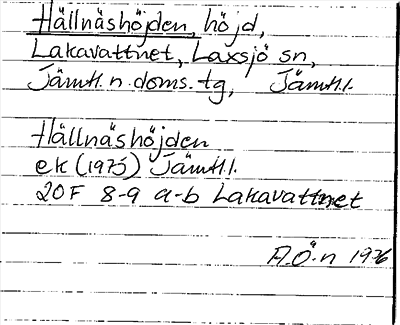 Hällnäshöjden, höjd,
Lakavattnet, Laxsjö sn,
Jämtl. n. doms. tg, Jämtl.l.
Hällnäshöjden
ek (1975) Jämtl.l.
20F 8-9 a-b Lakavattnet
A.Ö-n 1976